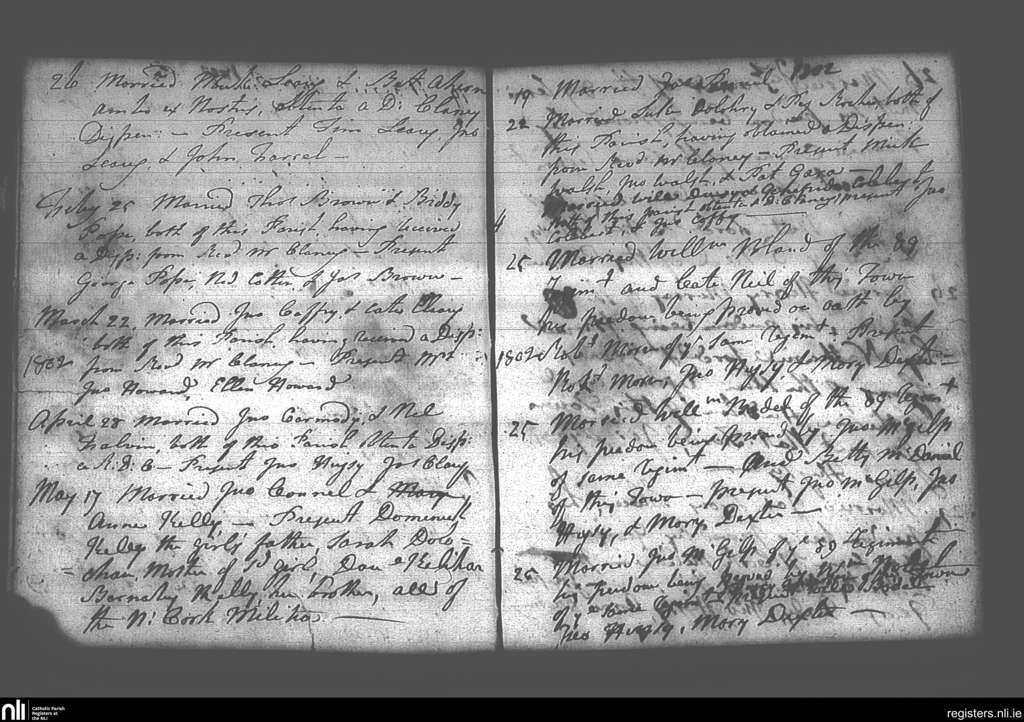 26 Married Mich: Leary & Bett Ahern
ambo ex Nostris, obtenta a D: Clancy
Dispen: – Present Tim Leary, Jno
Leary, & John Farrel –
Feby 25 Married Thos Brown & Biddy
Pope, both of this Parish, having received
a disp: from Revd Mr Clancy – Present
George Pope, Ned Cotter & Jas Brown –
March 22. Married Jno Caffry & Cate Cleary
both of this Parish, having received a Disp:
1802 from Revd Mr Clancy – Present Mrs
Jno Howard, Ellen Howard
April 28 Married Jno Carmody, & Nel
Galvin, both of this Parish obtenta Disp:
a R: D: C – Present Jno Huysy Jas Clary
May 17 Married Jno Connel &
Anne Kelly – Present Domenick
Kelly the girls father, Sarah Dono=
=than, Mother of sd girl, Dan Kelihan
Barnaby Kelly her brother, all of
the N: Cork Militia
1802
19 Married Jas
22 Married Luke & Peg Roche, both of
this Parish, having obtained a Dispen:
from Revd Mr Clancy – Present Mich
Walsh, Jno Walsh, & Pat Gara
Married Will
both of this parish obtenta D: Clancy, present Jno
& Jno Coffy
4
25 Married Willm Noland of the 89
Regimt and Cate Neil of this Town
his freedom being proved on oath by
1802 Robt More of ye same Regimt. Present
Robt More, Jno Huysy & Mary Dexter –
25 Married Willm Bedel of the 89 Regimt
his freedom being proved by Jno McGilp
of same Regimt – And Kitty McDaniel
of this Town – present Jno McGilp, Jno
Huysy, & Mary Dexter –
25 Married Jno McGilp of ye 89 Regiment
his freedom being proved by
of ye same Regimt
Jno Huysy, Mary Dexter –
nli
Catholic Parish
Registers at
the NLI
registers.nli.ie